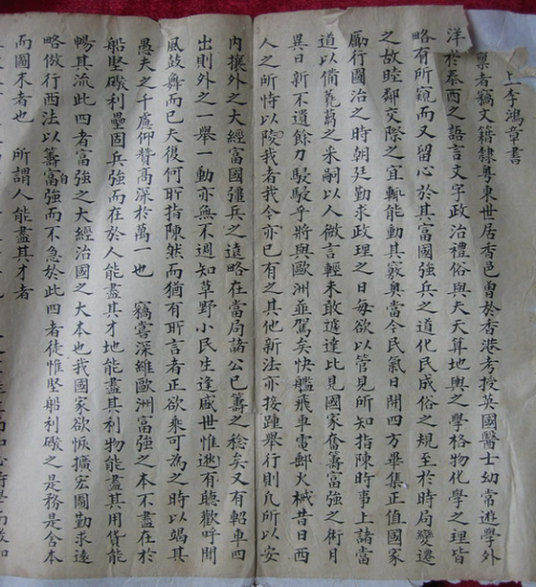 上李鴻章書
稟者竊文籍隸粵東世居香邑曾於香港考授英國醫士幼嘗遊學外
洋於泰西之語言文字政治禮俗與夫天算地輿之學格物化學之理皆
略有所窺而又留心於其富國強兵之道化民成俗之規至於時局變遷
之故睦鄰交際之宜輒能動其竅奧當今民氣日開四方畢集正值國家
勵行圖治之時朝廷勤求政理之日每欲以管見所知指陳時事上諸當
道以備蒭蕘之采嗣以人微言輕未敢遽達比見國家奮籌富強之術月
異日新不遺餘力駸駸乎將與歐洲並駕矣快艦飛車電郵火械昔日西
人之所恃以陵我者我今亦已有之其他新法亦接踵舉行則凡所以安
內攘外之大經富國彊兵之遠略在當局諸公已籌之稔矣又有軺車四
出則外之一舉一動亦無不週知草野小民生逢盛世惟逖有聽歡呼聞
風鼓舞而已夫復何所指陳然而猶有所言者正欲乘可為之時以竭其
愚夫之千慮仰贊高深於萬一也 竊嘗深維歐洲富強之本不盡在於
船堅礮利壘固兵強而在於人能盡其才地能盡其利物能盡其用貨能
暢其流此四者富強之大經治國之大本也我國家欲恢擴宏圖勤求遠
略倣行西法以籌富自強而不急於此四者徒惟堅船利礮之是務是舍本
而圖末者也 所謂人能盡其才者